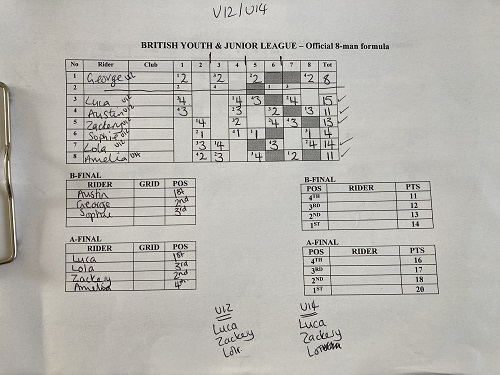 U12/U14
BRITISH YOUTH & JUNIOR LEAGUE – Official 8-man formula
No Rider Club 1 2 3 4 5 6 7 8 Tot
1 George U12 2 2 2 2 8
2
3 Luca U12 4 4 3 4 15
4 Austin U12 3 2 2 3 11
5 Zackery U12 4 2 4 3 13
6 Sophie U12 1 1 1 1 4
7 Lola U12 3 4 3 4 14
8 Amelia 2 3 4 2 11
B-FINAL
RIDER GRID POS
Austin 1st
George 2nd
Sophie 3rd
A-FINAL
RIDER GRID POS
Luca 1st
Lola 3rd
Zackery 2nd
Amelia 4th
B-FINAL
POS RIDER PTS
4TH 11
3RD 12
2ND 13
1ST 14
A-FINAL
POS RIDER PTS
4TH 16
3RD 17
2ND 18
1ST 20
U12
Luca
Zackery
Lola
U14
Luca
Zackery